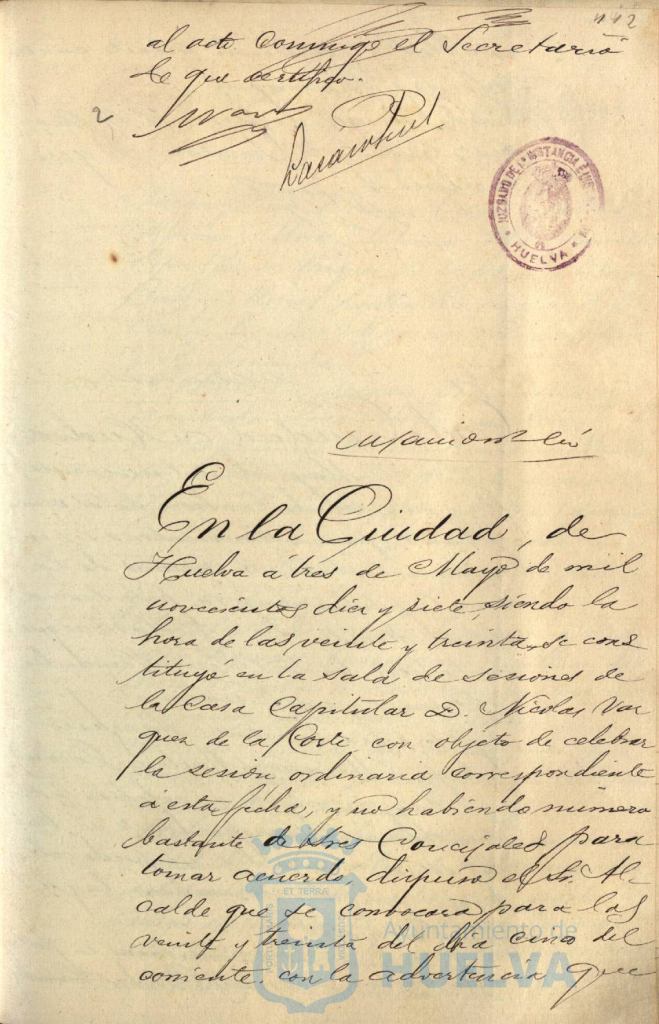 442
al acto conmigo el Secretario
de que certifico.
2
JUZGADO DE 1ª INSTANCIA É INS
HUELVA
En la Ciudad, de
Huelva á tres de Mayo de mil
novecientos diez y siete, siendo la
hora de las veinte y treinta, se cons
tituyó en la sala de sesiones de
la Casa Capitular D. Nicolas Vaz
quez de la Corte con objeto de celebrar
la sesión ordinaria correspondiente
á esta fecha, y no habiendo número
bastante de Sres Concejales para
tomar acuerdo, dispuso el Sr. Al-
calde que se convocara para las
veinte y treinta del dia cinco del
corriente, con la advertencia que
ET TERRÆ
Ayuntamiento de
HUELVA